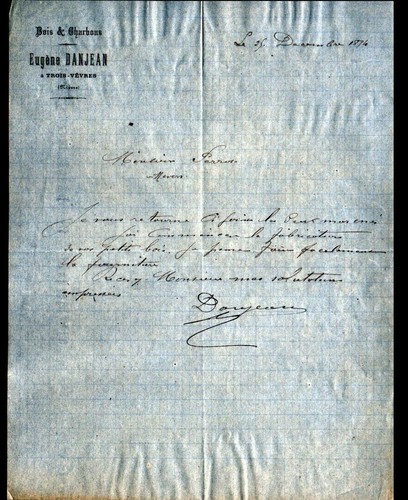 Bois & Charbons
Eugène DANJEAN
à TROIS-VÊVRES
(Nièvre)
Le 25 Décembre 1874
Monsieur
Nevers
Je vous retourne ci joint les deux
j'ai commencer la fabrication
de vos petits bois. Je pourrai faire facilement
la fourniture
Recevez Monsieur mes salutations
empressées
Danjean